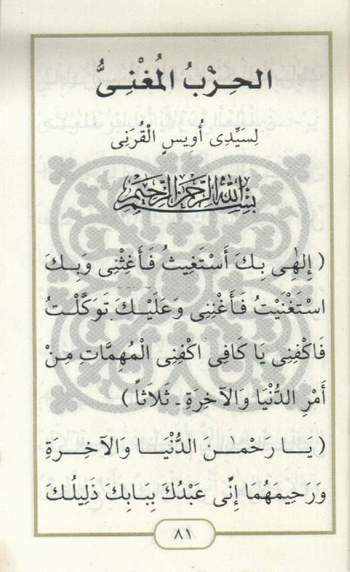 الْحِزْبُ الْمُغْنِىُّ
لِسَيِّدِى أُوَيسٍ الْقُرَنِى
بِسْمِ اللهِ الرَّحْمٰنِ الرَّحِيْمِ
( إِلٰهِى بِكَ أَسْتَغِيثُ فَأَغِثْنِى وَبِكَ
اسْتَغْنَيْتُ فَأَغْنِنِى وَعَلَيْكَ تَوَكَّلْتُ
فَاكْفِنِى يَا كَافِى اكْفِنِى الْمُهِمَّاتِ مِنْ
أَمْرِ الدُّنْيَا وَالآخِرَةِ ـ ثَلَاثاً )
( يَا رَحْمٰنَ الدُّنْيَا وَالآخِرَةِ
وَرَحِيمَهُمَا إِنِّى عَبْدُكَ بِبَابِكَ ذَلِيلُكَ
٨١